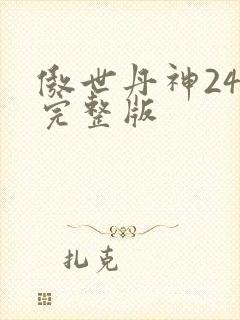 傲世丹神24
完整版
扎克